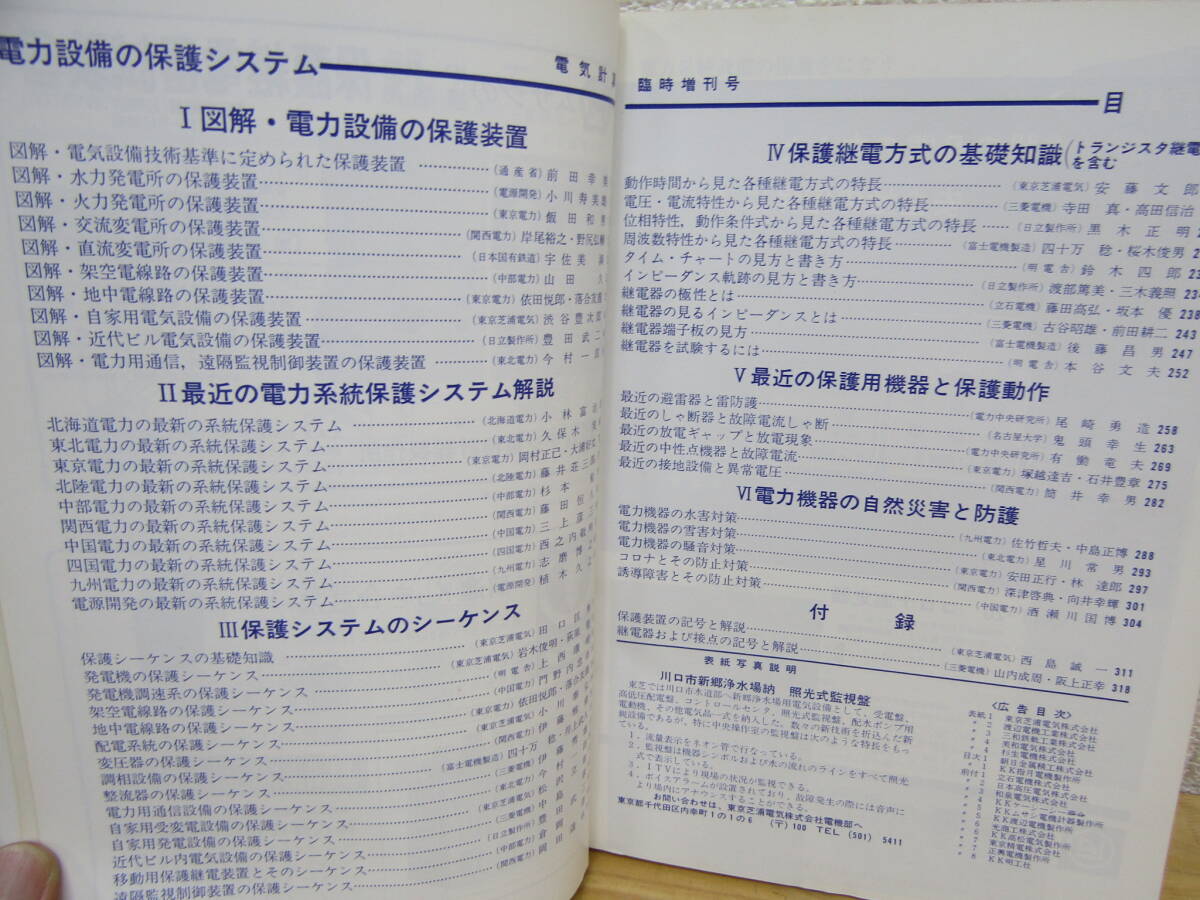 電力設備の保護システム
電気計
I 図解・電力設備の保護装置
図解・電気設備技術基準に定められた保護装置 (通産省) 前田幸
図解・水力発電所の保護装置 (電源開発) 小川寿美
図解・火力発電所の保護装置 (東京電力) 飯田和
図解・交流変電所の保護装置 (関西電力) 岸尾裕之・野尻弘
図解・直流変電所の保護装置 (日本国有鉄道) 宇佐美
図解・架空電線路の保護装置 (中部電力) 山田
図解・地中電線路の保護装置 (東京電力) 依田悦郎・落合友
図解・自家用電気設備の保護装置 (東京芝浦電気) 渋谷豊次
図解・近代ビル電気設備の保護装置 (日立製作所) 豊田武二
図解・電力用通信，遠隔監視制御装置の保護装置 (東北電力) 今村一
II 最近の電力系統保護システム解説
北海道電力の最新の系統保護システム (北海道電力) 小林富
東北電力の最新の系統保護システム (東北電力) 久保木
東京電力の最新の系統保護システム (東京電力) 岡村正巳・大浦好
北陸電力の最新の系統保護システム (北陸電力) 藤井荘三
中部電力の最新の系統保護システム (中部電力) 杉本
関西電力の最新の系統保護システム (関西電力) 藤田恒
中国電力の最新の系統保護システム (中国電力) 三上彦
四国電力の最新の系統保護システム (四国電力) 西之内
九州電力の最新の系統保護システム (九州電力) 志磨博
電源開発の最新の系統保護システム (電源開発) 植木久
III 保護システムのシーケンス
保護シーケンスの基礎知識 (東京芝浦電気) 田口
発電機の保護シーケンス (東京芝浦電気) 岩木俊明・荻原
発電機調速系の保護シーケンス (明電舎) 上西
架空電線路の保護シーケンス (中国電力) 門野内
地中電線路の保護シーケンス (東京電力) 依田悦郎・落合
配電系統の保護シーケンス 小川
変圧器の保護シーケンス (関西電力) 伊藤
調相設備の保護シーケンス (富士電機製造) 四十万 稔・
整流器の保護シーケンス (三菱電機) 伊
電力用通信設備の保護シーケンス (東北電力) 今村
自家用受変電設備の保護シーケンス (東京芝浦電気) 松沢
自家用発電設備の保護シーケンス (三菱電機) 中島
近代ビル内電気設備の保護シーケンス (日立製作所) 豊田
移動用保護継電装置とそのシーケンス (中部電力) 倉
遠隔監視制御装置の保護シーケンス (関西電力) 岡田
臨時増刊号
目
IV 保護継電方式の基礎知識 (トランジスタ継電
を含む
動作時間から見た各種継電方式の特長 (東京芝浦電気) 安藤文郎
電圧・電流特性から見た各種継電方式の特長 (三菱電機) 寺田 真・高田信治
位相特性，動作条件式から見た各種継電方式の特長 (日立製作所) 黒木正明
周波数特性から見た各種継電方式の特長 (富士電機製造) 四十万 稔・桜木俊男
タイム・チャートの見方と書き方 (明電舎) 鈴木四郎
インピーダンス軌跡の見方と書き方 (日立製作所) 渡部篤美・三木義照
継電器の極性とは (立石電機) 藤田高弘・坂本 優 238
継電器の見るインピーダンスとは (三菱電機) 古谷昭雄・前田耕二 243
継電器端子板の見方 (富士電機製造) 後藤昌男 247
継電器を試験するには (明電舎) 本谷文夫 252
V 最近の保護用機器と保護動作
最近の避雷器と雷防護 (電力中央研究所) 尾崎勇造 258
最近のしゃ断器と故障電流しゃ断 (名古屋大学) 鬼頭幸生 263
最近の放電ギャップと放電現象 (電力中央研究所) 有働竜夫 269
最近の中性点機器と故障電流 (東京電力) 塚越達吉・石井豊章 275
最近の接地設備と異常電圧 (関西電力) 筒井幸男 282
VI 電力機器の自然災害と防護
電力機器の水害対策 (九州電力) 佐竹哲夫・中島正博 288
電力機器の雪害対策 (東北電力) 星川常男 293
電力機器の騒音対策 (東京電力) 安田正行・林 達郎 297
コロナとその防止対策 (関西電力) 深津啓典・向井幸輝 301
誘導障害とその防止対策 (中国電力) 酒瀬川国博 304
付録
保護装置の記号と解説 (東京芝浦電気) 西島誠一 311
継電器および接点の記号と解説 (三菱電機) 山内成周・阪上正幸 318
表紙写真説明
川口市新郷浄水場納 照光式監視盤
東芝では川口市水道部へ新郷浄水場用電気設備として，受電盤，
高低圧配電盤，コントロールセンタ，照光式監視盤，配水ポンプ用
電動機，その他電気品一式を納入した。数々の新技術を折込んだ新
規設備であるが，特に中央操作室の監視盤は次のような特長をもっ
ている。
1．流量表示をネオン管で行なっている。
2．監視盤は機器シンボルおよび水の流れのラインをすべて照光
式で表示している。
3．ITVにより現場の状況が監視できる。
4．ボイスアラームが設置されており，故障発生の際には音声に
より場内にアナウンスすることができる。
お問い合わせは，東京芝浦電気株式会社電機部へ
東京都千代田区内幸町1の1の6 (〒)100 TEL (501) 5411
〈広告目次〉
表紙 1 東京芝浦電気株式会社
〃 2 渡辺電機工業株式会社
〃 3 三和鉄軌工業株式会社
〃 4 美和電気株式会社
目次 1 杉生電機株式会社
朝日金属精工株式会社
前付 1 KK指月電機製作所
〃 2 立石電機株式会社
〃 3 日本高圧電気株式会社
〃 4 和泉電気株式会社
〃 5 KKケーシーシー
〃 5 KKムサシ電機計器製作所
〃 6 KK渡辺電機製作所
〃 6 光商工株式会社
〃 7 KK高松電気製作所
〃 7 東京精電株式会社
〃 8 正興電機製作所
KK明工社